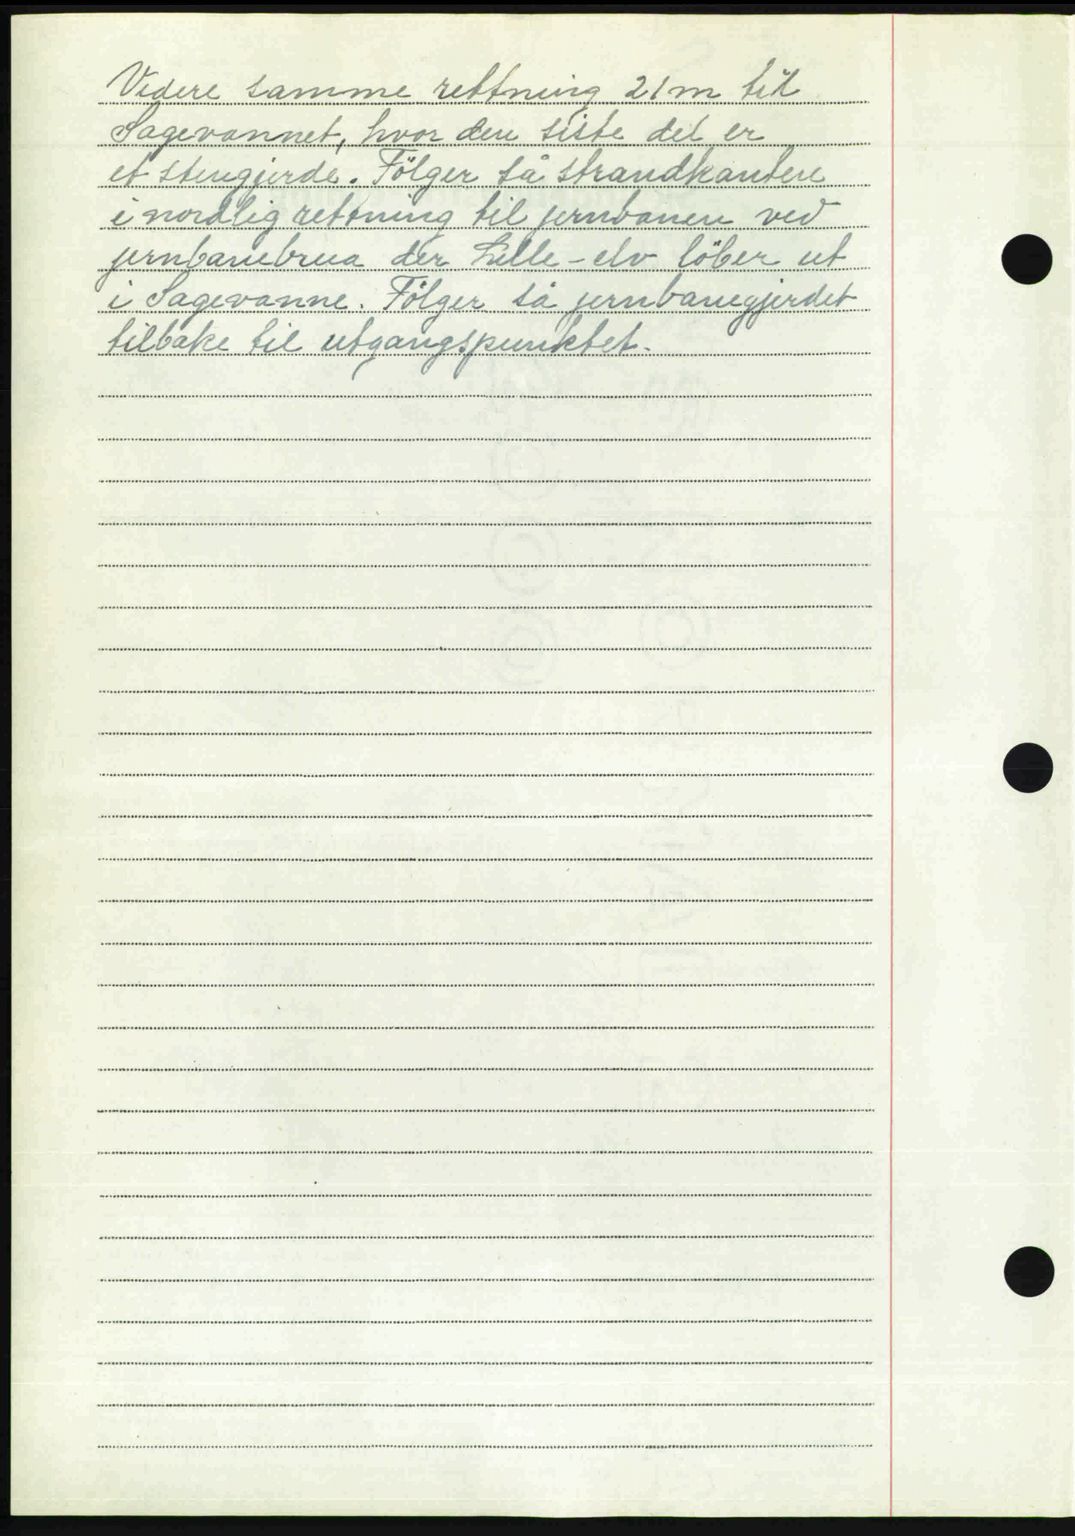 Videre samme rettning 21 m til
Sagevannet, hvor den siste del er
et stengjerde. Følger så strandkanten
i nordlig rettning til jernbanen ved
jernbanebrua der Lille-elv løber ut
i Sagevanne. Følger så jernbanegjerdet
tilbake til utgangspunktet.